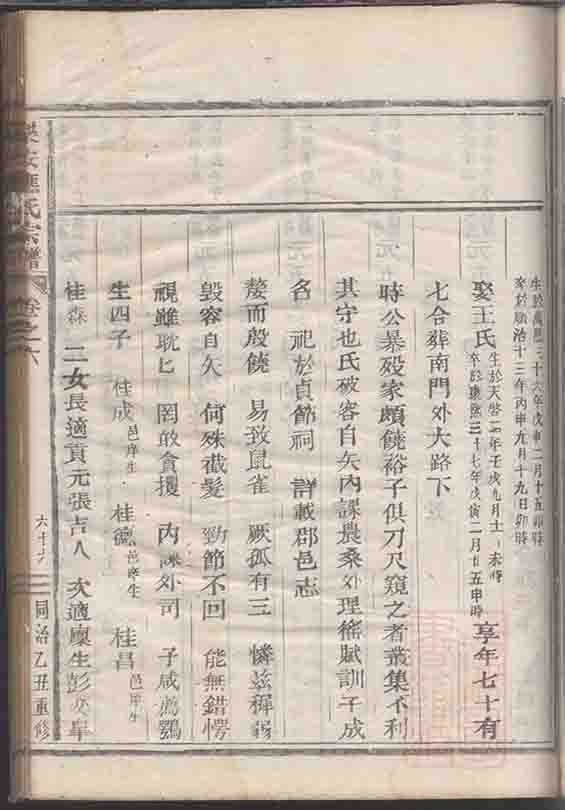 生於萬厯三十六年戊申二月十五卯時
卒於順治十三年丙申九月十九日卯時
娶王氏生於天啓二年壬戌九月十一未時
卒於康熙三十七年戊寅二月廿五申時享年七十有
七合葬南門外大路下
時公暴歿家頗饒裕子俱刀尺窺之者叢集不利
其守也氏破容自矢內課農桑外理徭賦訓子成
名 祀於貞節祠 詳載郡邑志
嫠而殷饒 易致鼠雀 厥孤有三 憐兹穉弱
毀容自矢 何殊截髮 勁節不回 能無錯愕
視雖耽匕 罔敢貪攫 內課外司 子咸薦鶚
生四子 桂成邑庠生 桂德邑庠生 桂昌邑庠生
桂森 二女長適貢元張吉人 次適廩生彭
氏宗譜
卷之六
六十六
同治乙丑重修